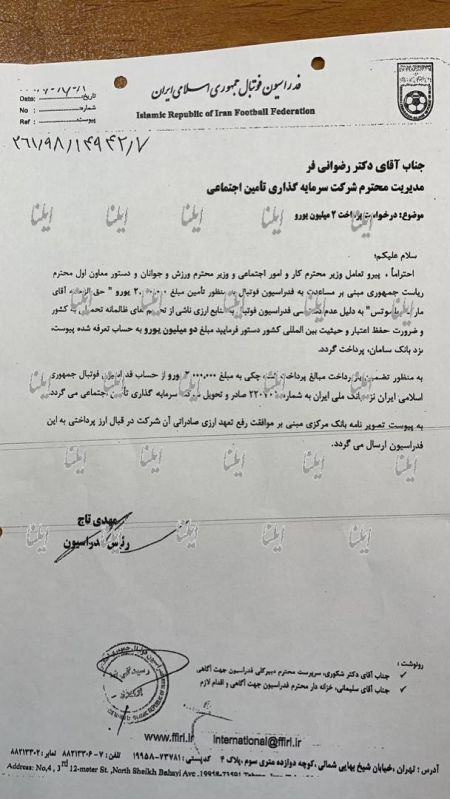 فدراسیون فوتبال جمهوری اسلامی ایران
Islamic Republic of Iran Football Federation
تاریخ: Date:
شماره: No :
پیوست: Ref :
۲۶۱/۹۸/۱۴۹۴۲/۷
جناب آقای دکتر رضوانی فر
مدیریت محترم شرکت سرمایه گذاری تأمین اجتماعی
موضوع: درخواست پرداخت ۲ میلیون یورو
سلام علیکم؛
احتراماً، پیرو تعامل وزیر محترم کار و امور اجتماعی و وزیر محترم ورزش و جوانان و دستور معاون اول محترم
ریاست جمهوری مبنی بر مساعدت به فدراسیون فوتبال به منظور تأمین مبلغ یورو " حق آقای
" به دلیل عدم دسترسی فدراسیون فوتبال به منابع ارزی ناشی از تحریم های ظالمانه تحمیلی به کشور
و ضرورت حفظ اعتبار و حیثیت بین المللی کشور دستور فرمایید مبلغ دو میلیون یورو به حساب تعرفه شده پیوست،
نزد بانک سامان، پرداخت گردد.
به منظور تضمین پرداخت مبالغ پرداخت شده، چکی به مبلغ ۲,۰۰۰,۰۰۰ یورو از حساب فدراسیون فوتبال جمهوری
اسلامی ایران نزد بانک ملی ایران به شماره صادر و تحویل شرکت سرمایه گذاری تأمین اجتماعی می گردد.
به پیوست تصویر نامه بانک مرکزی مبنی بر موافقت رفع تعهد ارزی صادراتی آن شرکت در قبال ارز پرداختی به این
فدراسیون ارسال می گردد.
مهدی تاج
رئیس فدراسیون
رونوشت :
جناب آقای دکتر شکوری، سرپرست محترم دبیرکلی فدراسیون جهت آگاهی
جناب آقای سلیمانی، خزانه دار محترم فدراسیون جهت آگاهی و اقدام لازم
www.ffiri.ir international@ffiri.ir
آدرس : تهران، خیابان شیخ بهایی شمالی، کوچه دوازده متری سوم، پلاک ۴ کدپستی: ۷۳۷۸۱-۱۹۹۵۸ تلفن: ۷-۸۸۲۱۳۳۰۶ نمابر: ۸۸۲۱۳۳۰۲
Address: No,4 , 3rd 12-meter St. ,North Sheikh Bahayi Ave
ایلنا